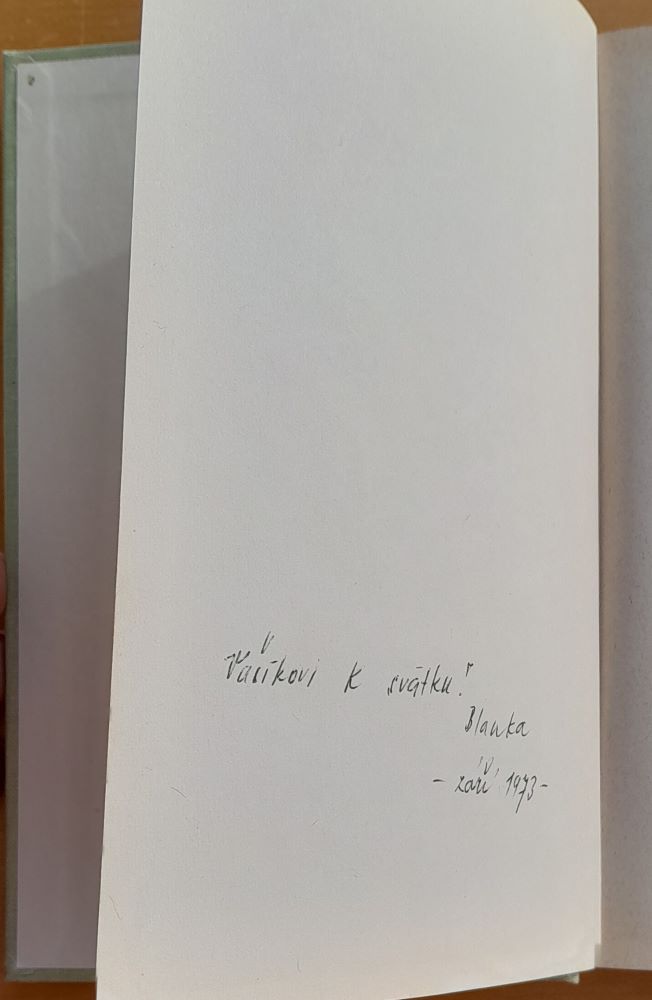 Vašíkovi k svátku!
Blanka
- září 1973 -